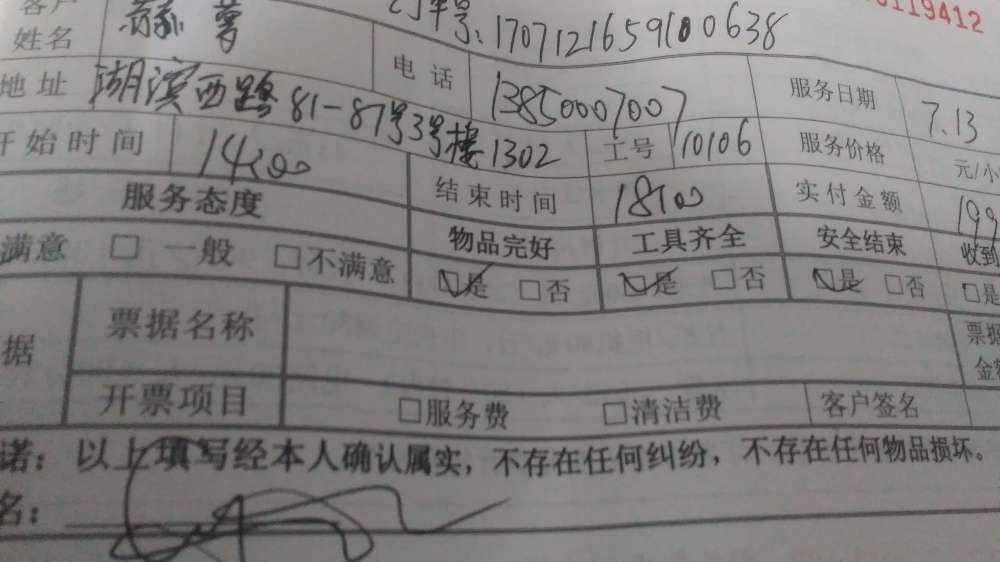 客户 订单号:1707121659100638 119412
姓名
地址 湖滨西路81-87号3号楼1302 电话 13850007007 服务日期 7.13
开始时间 14:00 工号 10106 服务价格 元/小
服务态度 结束时间 18:00 实付金额 199
满意 □ 一般 □不满意 物品完好 工具齐全 安全结束 收到
□是 □否 □是 □否 □是 □否 □是
据 票据名称 票据
金额
开票项目 □服务费 □清洁费 客户签名
诺：以上填写经本人确认属实，不存在任何纠纷，不存在任何物品损坏。
名：